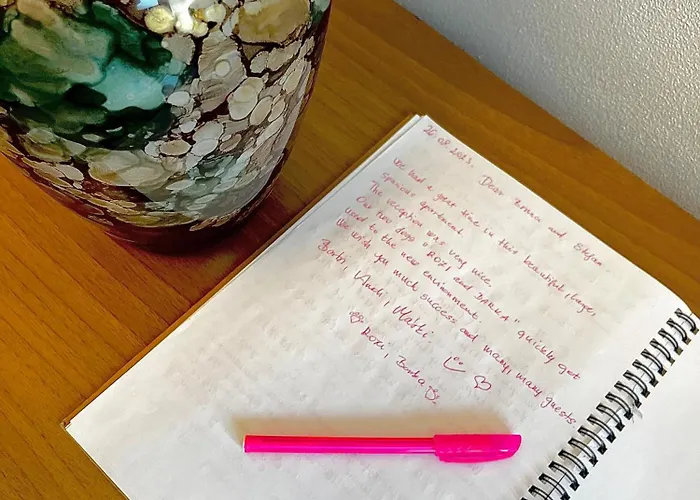 26.08.2023, Dear and Stefan.
We had a great time in this beautiful, large,
spacious apartment.
The reception was very nice.
Our two dogs "ROXI and BARKA" quickly got
used to the new environment.
We wish you much success and many, many guests.
Barbi, Andi, Matki.
Roxi, Barka